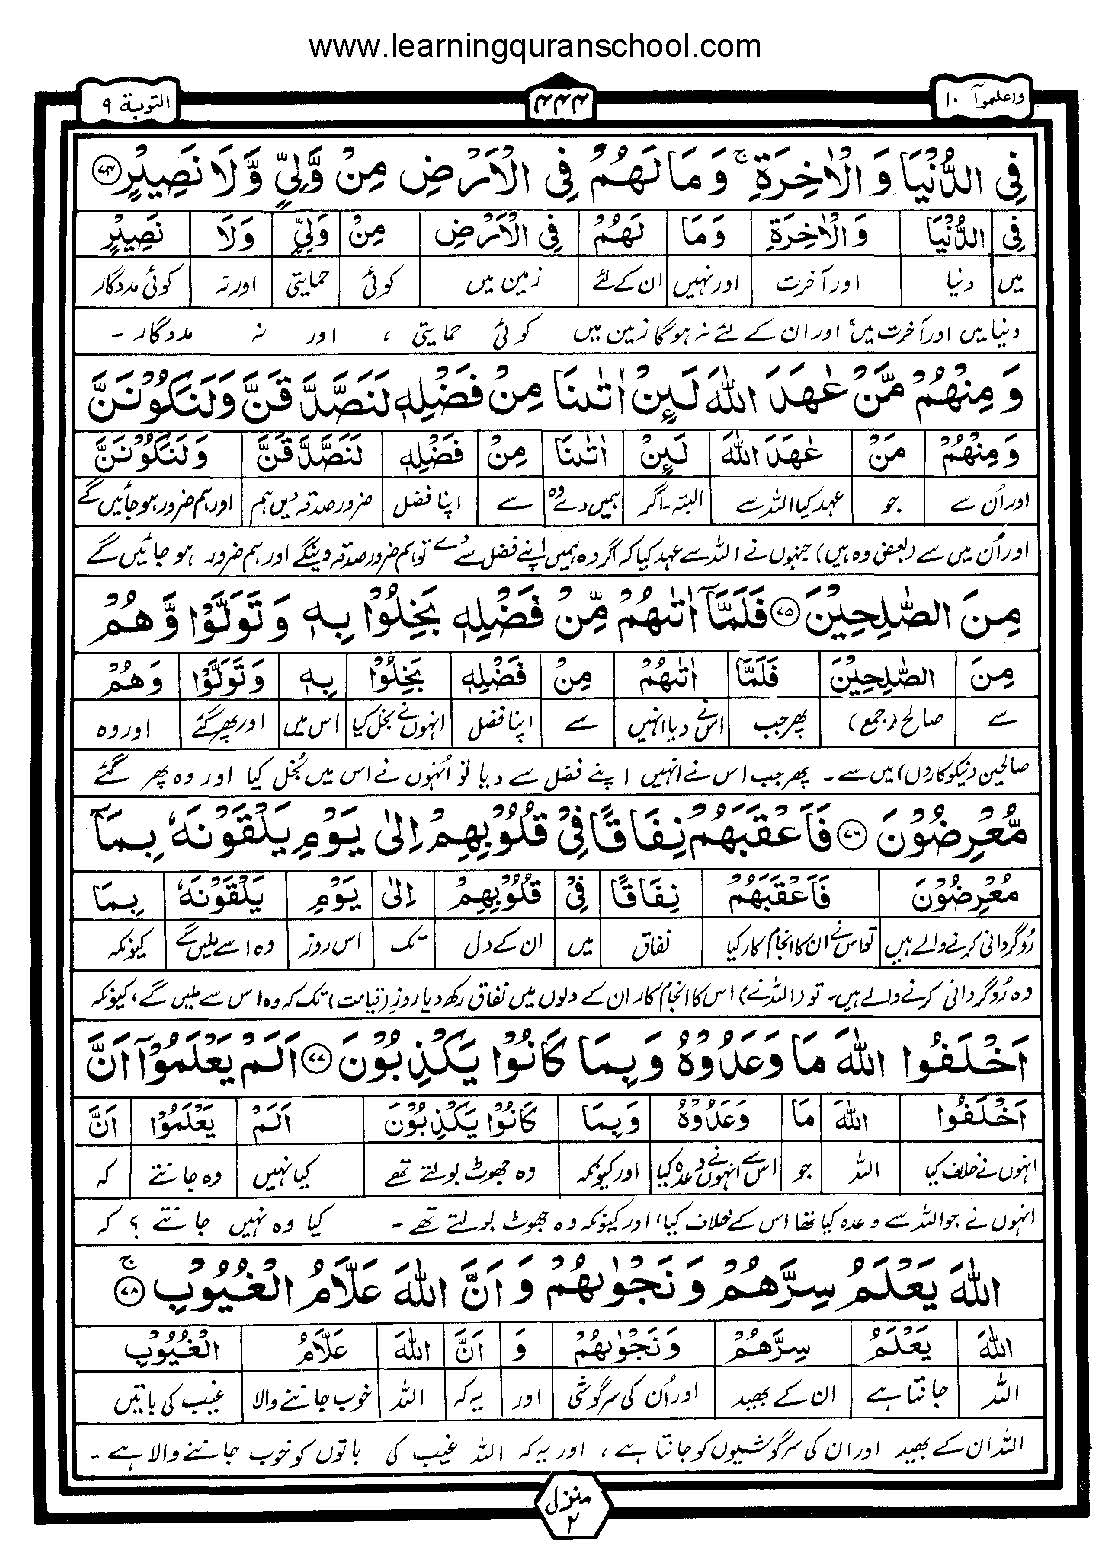 www.learningquranschool.com
واعلموآ ١٠ ۴۴۴ التوبة ٩
فِي الدُّنْيَا وَالْاٰخِرَةِ ۚ وَمَا لَهُمْ فِي الْاَرْضِ مِنْ وَّلِيٍّ وَّلَا نَصِيْرٍ ﴿٧٤﴾
فِي الدُّنْيَا وَالْاٰخِرَةِ وَمَا لَهُمْ فِي الْاَرْضِ مِنْ وَلِيٍّ وَلَا نَصِيْرٍ
میں دنیا اور آخرت اور نہیں ان کے لئے زمین میں کوئی حمایتی اور نہ کوئی مددگار
دنیا میں اور آخرت میں، اور ان کے لئے نہ ہوگا زمین میں کوئی حمایتی ، اور نہ مددگار ۔
وَمِنْهُمْ مَّنْ عٰهَدَ اللّٰهَ لَئِنْ اٰتٰىنَا مِنْ فَضْلِهٖ لَنَصَّدَّقَنَّ وَلَنَكُوْنَنَّ
وَمِنْهُمْ مَنْ عٰهَدَ اللّٰهَ لَئِنْ اٰتٰىنَا مِنْ فَضْلِهٖ لَنَصَّدَّقَنَّ وَلَنَكُوْنَنَّ
اور اُن سے جو عہد کیا اللہ سے البتہ۔ اگر ہمیں دے وہ سے اپنا فضل ضرور صدقہ دیں ہم اور ہم ضرور ہوجائیں گے
اور اُن میں سے (بعض وہ ہیں) جنہوں نے اللہ سے عہد کیا کہ اگر وہ ہمیں اپنے فضل سے دے تو ہم ضرور صدقہ دینگے اور ہم ضرور ہو جائیں گے
مِنَ الصّٰلِحِيْنَ ﴿٧٥﴾ فَلَمَّآ اٰتٰىهُمْ مِّنْ فَضْلِهٖ بَخِلُوْا بِهٖ وَتَوَلَّوْا وَّهُمْ
مِنَ الصّٰلِحِيْنَ فَلَمَّا اٰتٰىهُمْ مِنْ فَضْلِهٖ بَخِلُوْا بِهٖ وَتَوَلَّوْا وَهُمْ
سے صالح (جمع) پھر جب اس نے دیا انہیں سے اپنا فضل انہوں نے بخل کیا اس میں اور پھر گئے اور وہ
صالحین (نیکو کاروں) میں سے ۔ پھر جب اس نے انہیں اپنے فضل سے دیا تو اُنہوں نے اس میں بُخل کیا اور وہ پھر گئے
مُّعْرِضُوْنَ ﴿٧٦﴾ فَاَعْقَبَهُمْ نِفَاقًا فِيْ قُلُوْبِهِمْ اِلٰى يَوْمِ يَلْقَوْنَهٗ بِمَآ
مُعْرِضُوْنَ فَاَعْقَبَهُمْ نِفَاقًا فِيْ قُلُوْبِهِمْ اِلٰى يَوْمِ يَلْقَوْنَهٗ بِمَا
رُوگردانی کرنے والے ہیں تو اس نے ان کا انجام کار کیا نفاق میں ان کے دل تک اس روز وہ اسے ملیں گے کیونکہ
وہ رُوگردانی کرنے والے ہیں۔ تو (اللہ نے) اس کا انجام کار ان کے دلوں میں نفاق رکھ دیا روزِ (قیامت) تک کہ وہ اس سے ملیں گے، کیونکہ
اَخْلَفُوا اللّٰهَ مَا وَعَدُوْهُ وَبِمَا كَانُوْا يَكْذِبُوْنَ ﴿٧٧﴾ اَلَمْ يَعْلَمُوْٓا اَنَّ
اَخْلَفُوا اللّٰهَ مَا وَعَدُوْهُ وَبِمَا كَانُوْا يَكْذِبُوْنَ اَلَمْ يَعْلَمُوْا اَنَّ
انہوں نے خلاف کیا اللہ جو اس سے انہوں نے وعدہ کیا اور کیونکہ وہ جھوٹ بولتے تھے کیا نہیں وہ جانتے کہ
انہوں نے جو اللہ سے وعدہ کیا تھا اس کے خلاف کیا، اور کیونکہ وہ جھوٹ بولتے تھے ۔ کیا وہ نہیں جانتے ؟ کہ
اللّٰهَ يَعْلَمُ سِرَّهُمْ وَنَجْوٰىهُمْ وَاَنَّ اللّٰهَ عَلَّامُ الْغُيُوْبِ ﴿٧٨﴾ ۚ
اللّٰهَ يَعْلَمُ سِرَّهُمْ وَنَجْوٰىهُمْ وَ اَنَّ اللّٰهَ عَلَّامُ الْغُيُوْبِ
اللہ جانتا ہے ان کے بھید اور اُن کی سرگوشی اور یہ کہ اللہ خوب جاننے والا غیب کی باتیں
اللہ ان کے بھید اور ان کی سرگوشیوں کو جانتا ہے ، اور یہ کہ اللہ غیب کی باتوں کو خوب جاننے والا ہے ۔
منزل ٢